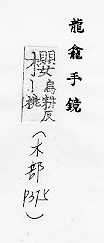 龍龕手鏡
櫻烏耕反
〡桃
(木部 P375)